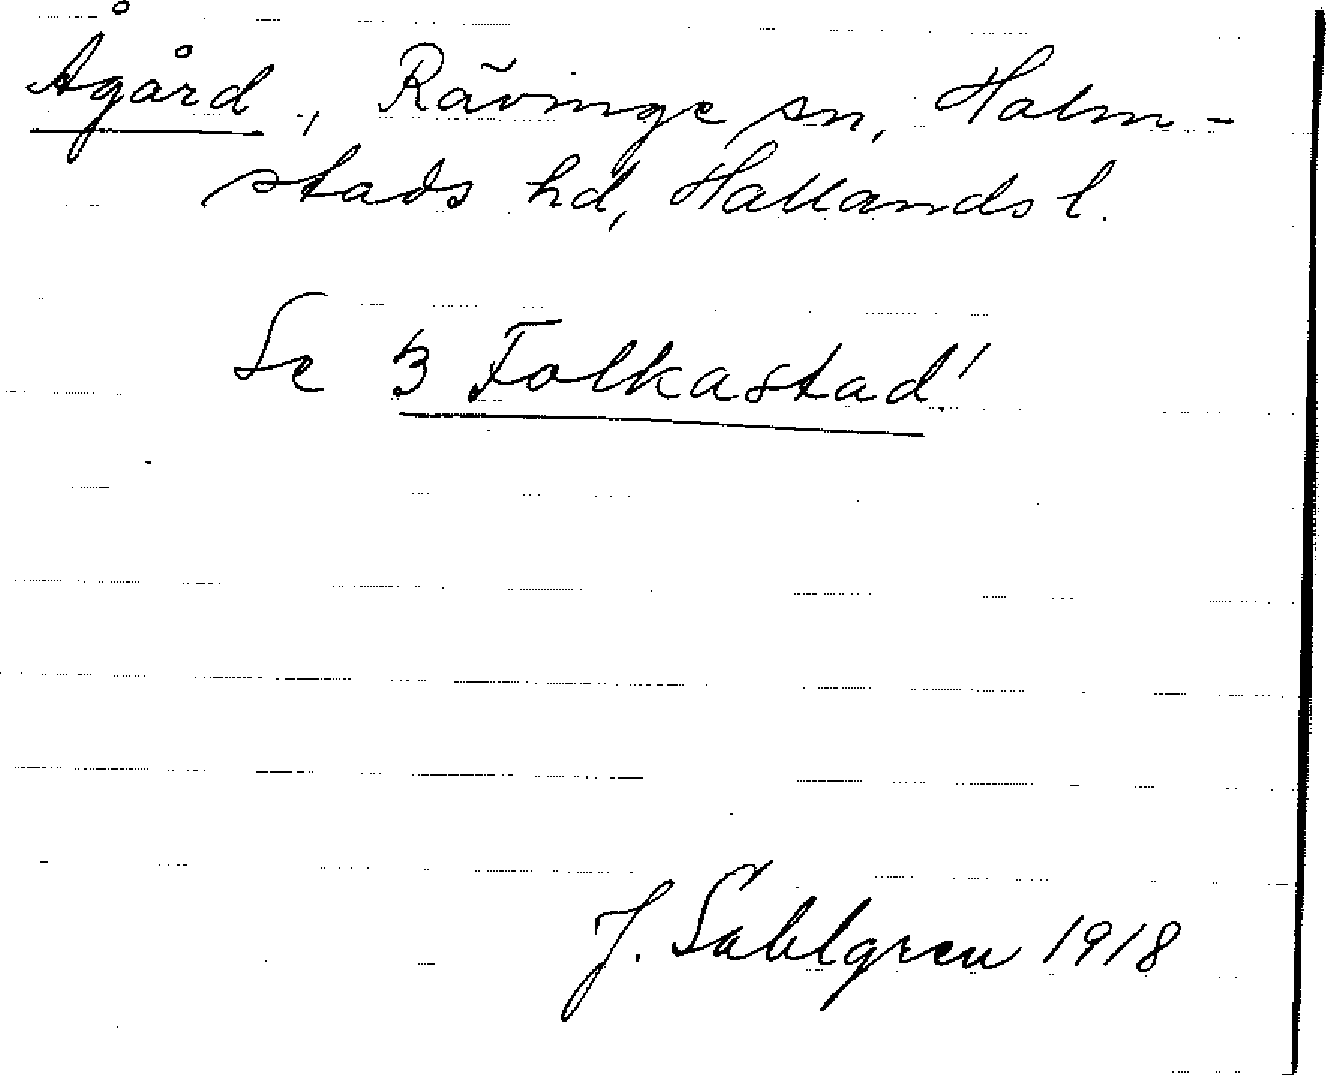 Ågård, Rävinge sn, Halm-
stads hd, Hallands l.
Se 3 Folkastad!
J. Sahlgren 1918